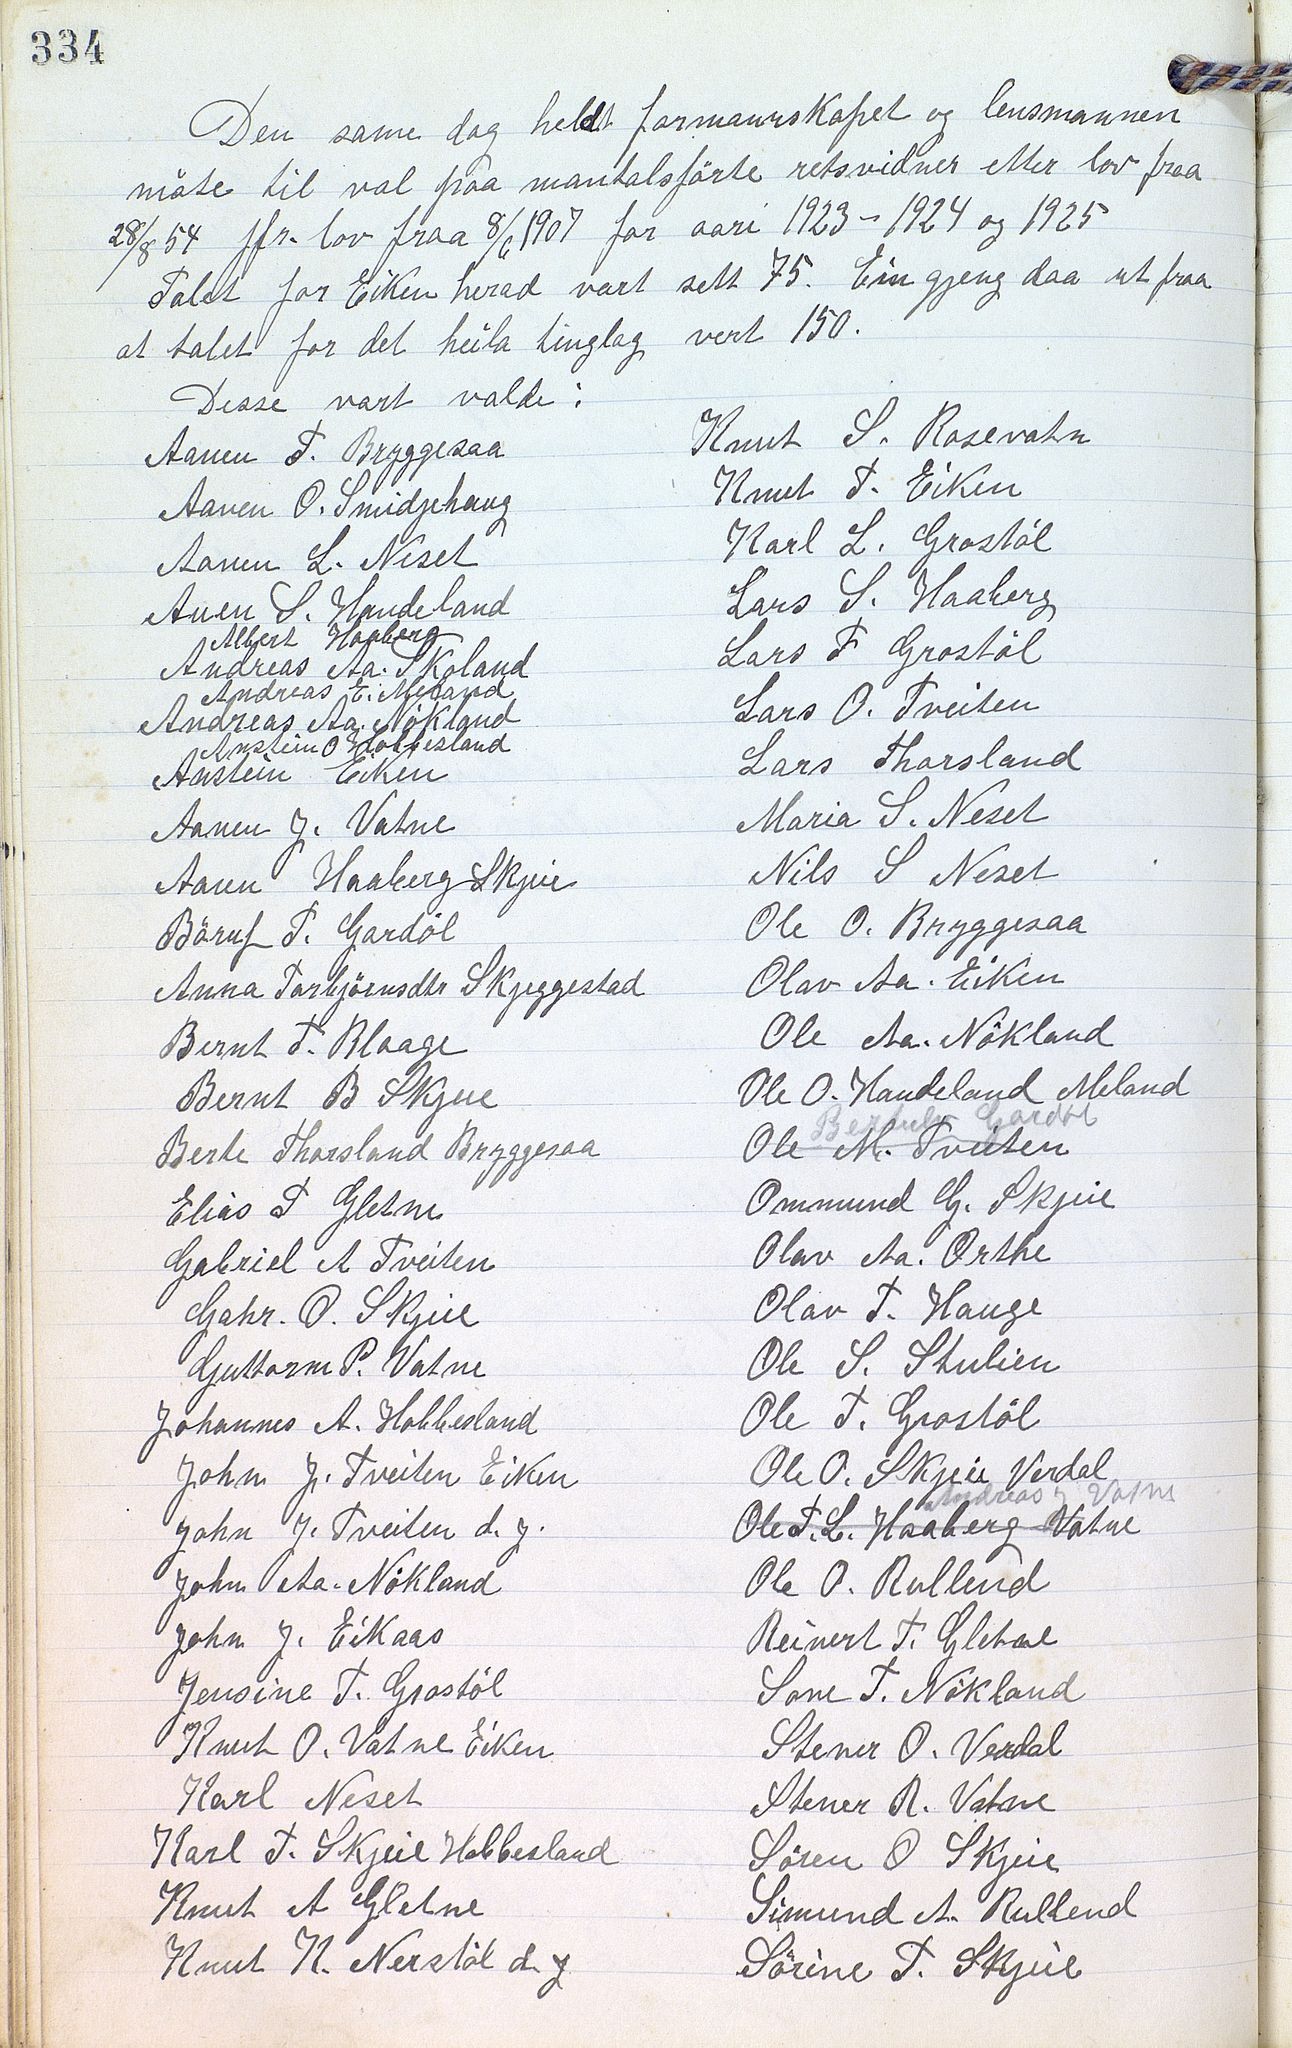 334
Den same dag heldt formannskapet og lensmannen
möte til val paa mantalsförte retsvidner etter lov fraa
28/8 54 jfr. lov fraa 8/6 1907 for aari 1923 - 1924 og 1925
Talet for Eiken herad vart sett 75. Ein gjeng daa ut fraa
at talet for det heila tinglag vert 150.
Desse vart valde:
Aanen T. Bryggesaa
Aanen O. Smidjehaug
Aanen L. Neset
Anen S. Handeland
Albert Haaberg
Andreas Aa. Skoland
Andreas E. Meland
Andreas Aa. Nökland
Anstein O Hobbesland
Anstein Eiken
Aanen J. Vatne
Aanen Haaberg Skjeie
Böruf T. Gardöl
Anna Torbjörnsdtr Skjeggestad
Bernt T. Blaage
Bernt B Skjeie
Berte Thorsland Bryggesaa
Elias T Gletne
Gabriel A Tveiten
Gabr. O. Skjeie
Guttorm P. Vatne
Johannes A. Hobbesland
John J. Tveiten Eiken
John J. Tveiten d. y.
John Aa. Nökland
John J. Eikaas
Jensine T. Grostöl
Knut O. Vatne Eiken
Karl Neset
Karl T. Skjeie Hobbesland
Knut A Gletne
Knut K. Nerstöl d. y
Knut S. Rosevatn
Knut T. Eiken
Karl L. Grostöl
Lars S. Haaberg
Lars T Grostöl
Lars O. Tveiten
Lars Thorsland
Maria S. Neset
Nils S Neset
Ole O. Bryggesaa
Olav Aa. Eiken
Ole Aa. Nökland
Ole O. Handeland Meland
Gardöl
Ole M. Tveiten
Ommund G. Skjeie
Olav Aa. Orthe
Olav T. Hauge
Ole S. Stulien
Ole T. Grostöl
Ole O. Skjeie Verdal
Andreas J Vatne
Ole T. L. Haaberg Vatne
Ole O. Rullend
Reinert T. Gletne
Sone T. Nökland
Stener O. Verdal
Stener R. Vatne
Sören O Skjeie
Simund A. Rullend
Sörine T. Skjeie